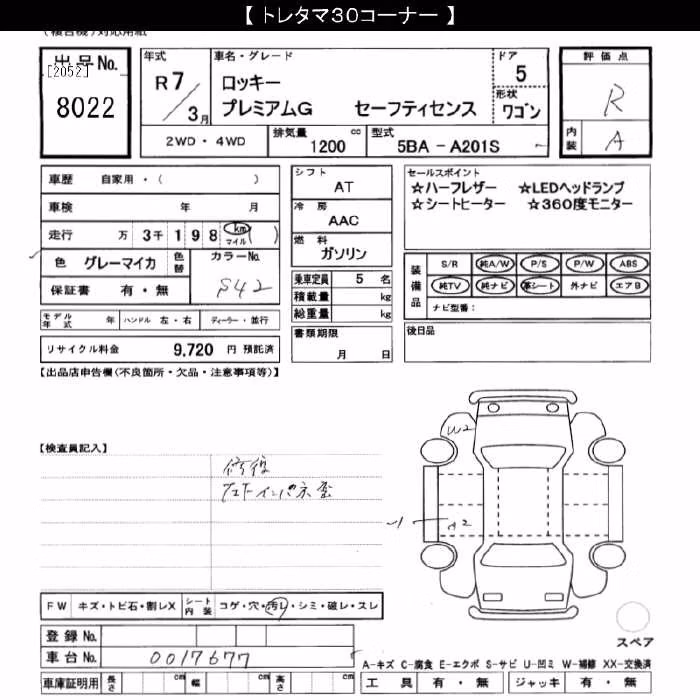 【 トレタマ30コーナー 】
(複合機)対応用紙
出品No.
[2052]
8022
年式
R 7 / 3月
車名・グレード
ロッキー
プレミアムG セーフティセンス
ドア
5
形状
ワゴン
評価点
R
内装
A
2WD・4WD
排気量 1200 cc
型式 5BA-A201S
車歴 自家用・( )
車検 年 月
走行 万 3千 1 9 8 km マイル )
色 グレーマイカ
色替
カラーNo.
S42
保証書 有・無
シフト
AT
冷房
AAC
燃料
ガソリン
乗車定員 5 名
積載量 kg
総重量 kg
セールスポイント
☆ハーフレザー ☆LEDヘッドランプ
☆シートヒーター ☆360度モニター
装備品
S/R 純A/W P/S P/W ABS
純TV 純ナビ 革シート 外ナビ エアB
ナビ型番:
モデル年式 年 ハンドル 左・右 ディーラー・並行
書類期限
月 日
後日品
リサイクル料金 9,720 円 預託済
【出品店申告欄(不良箇所・欠品・注意事項等)】
【検査員記入】
修復
W2
A2
FW キズ・トビ石・割レX シート内装 コゲ・穴・汚レ・シミ・破レ・スレ
登録No.
車台No. 0017677
スペア
A-キズ C-腐食 E-エクボ S-サビ U-凹ミ W-補修 XX-交換済
車庫証明用 長さ cm 幅 cm 高さ cm
工具 有・無 ジャッキ 有・無